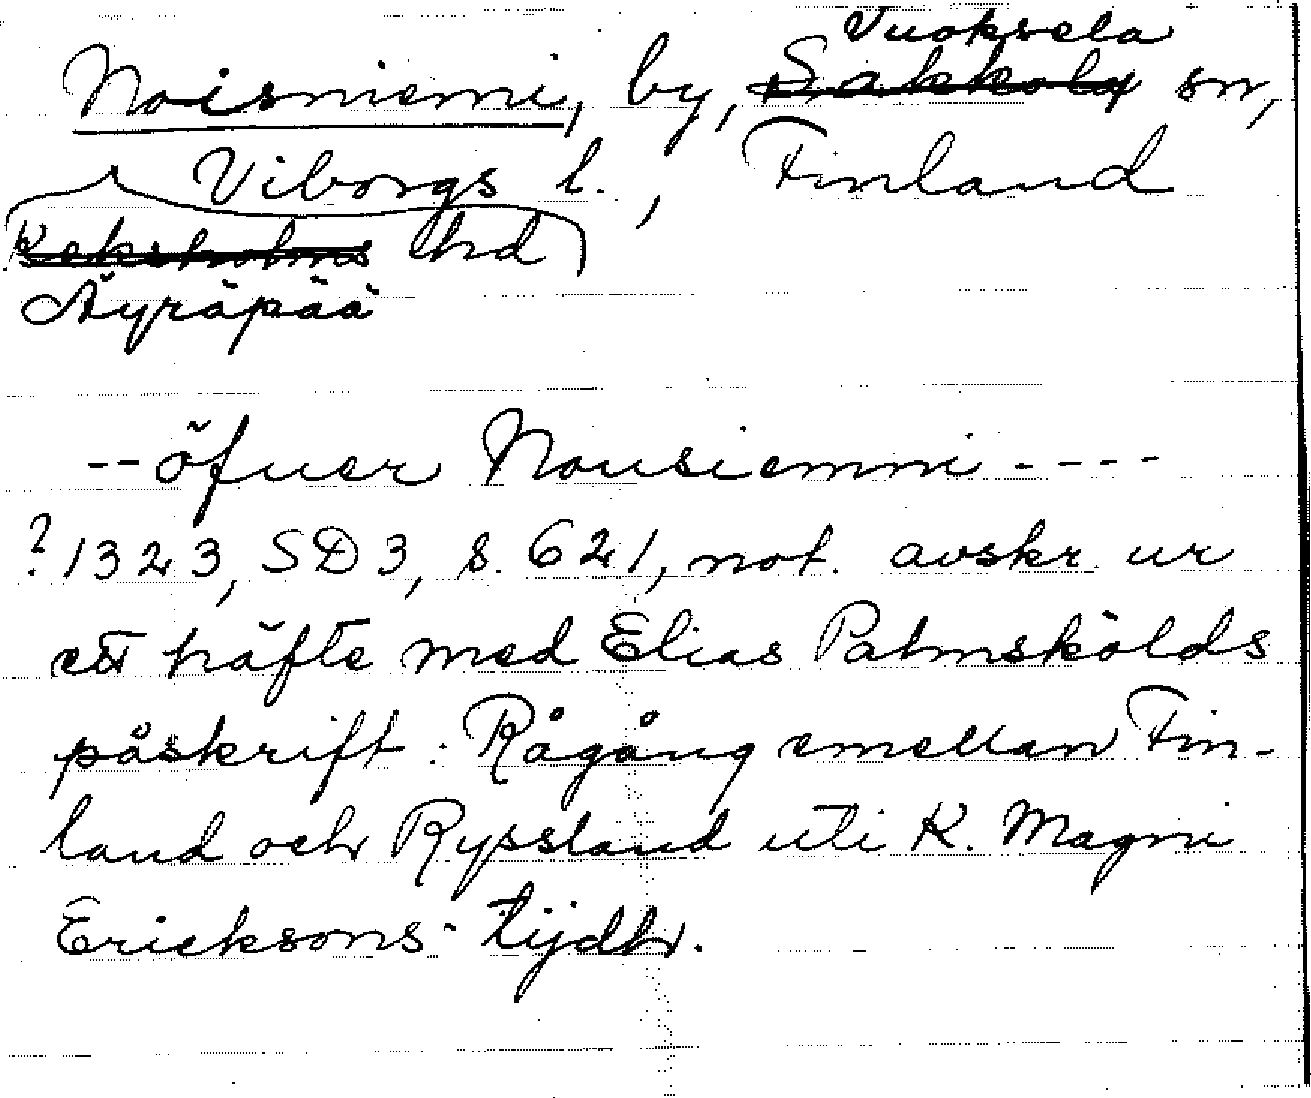 Vuoksela
Noisniemi, by, Sakkola sn,
Viborgs l., Finland
Keksholms hd
Äyräpää
-- öfuer Nousiemmi ----
? 1323, SD 3, s. 621, not. avskr. ur
ett häfte med Elias Palmskölds
påskrift: Rågång emellan Fin-
land och Ryssland uti K. Magni
Ericksons tijdh.